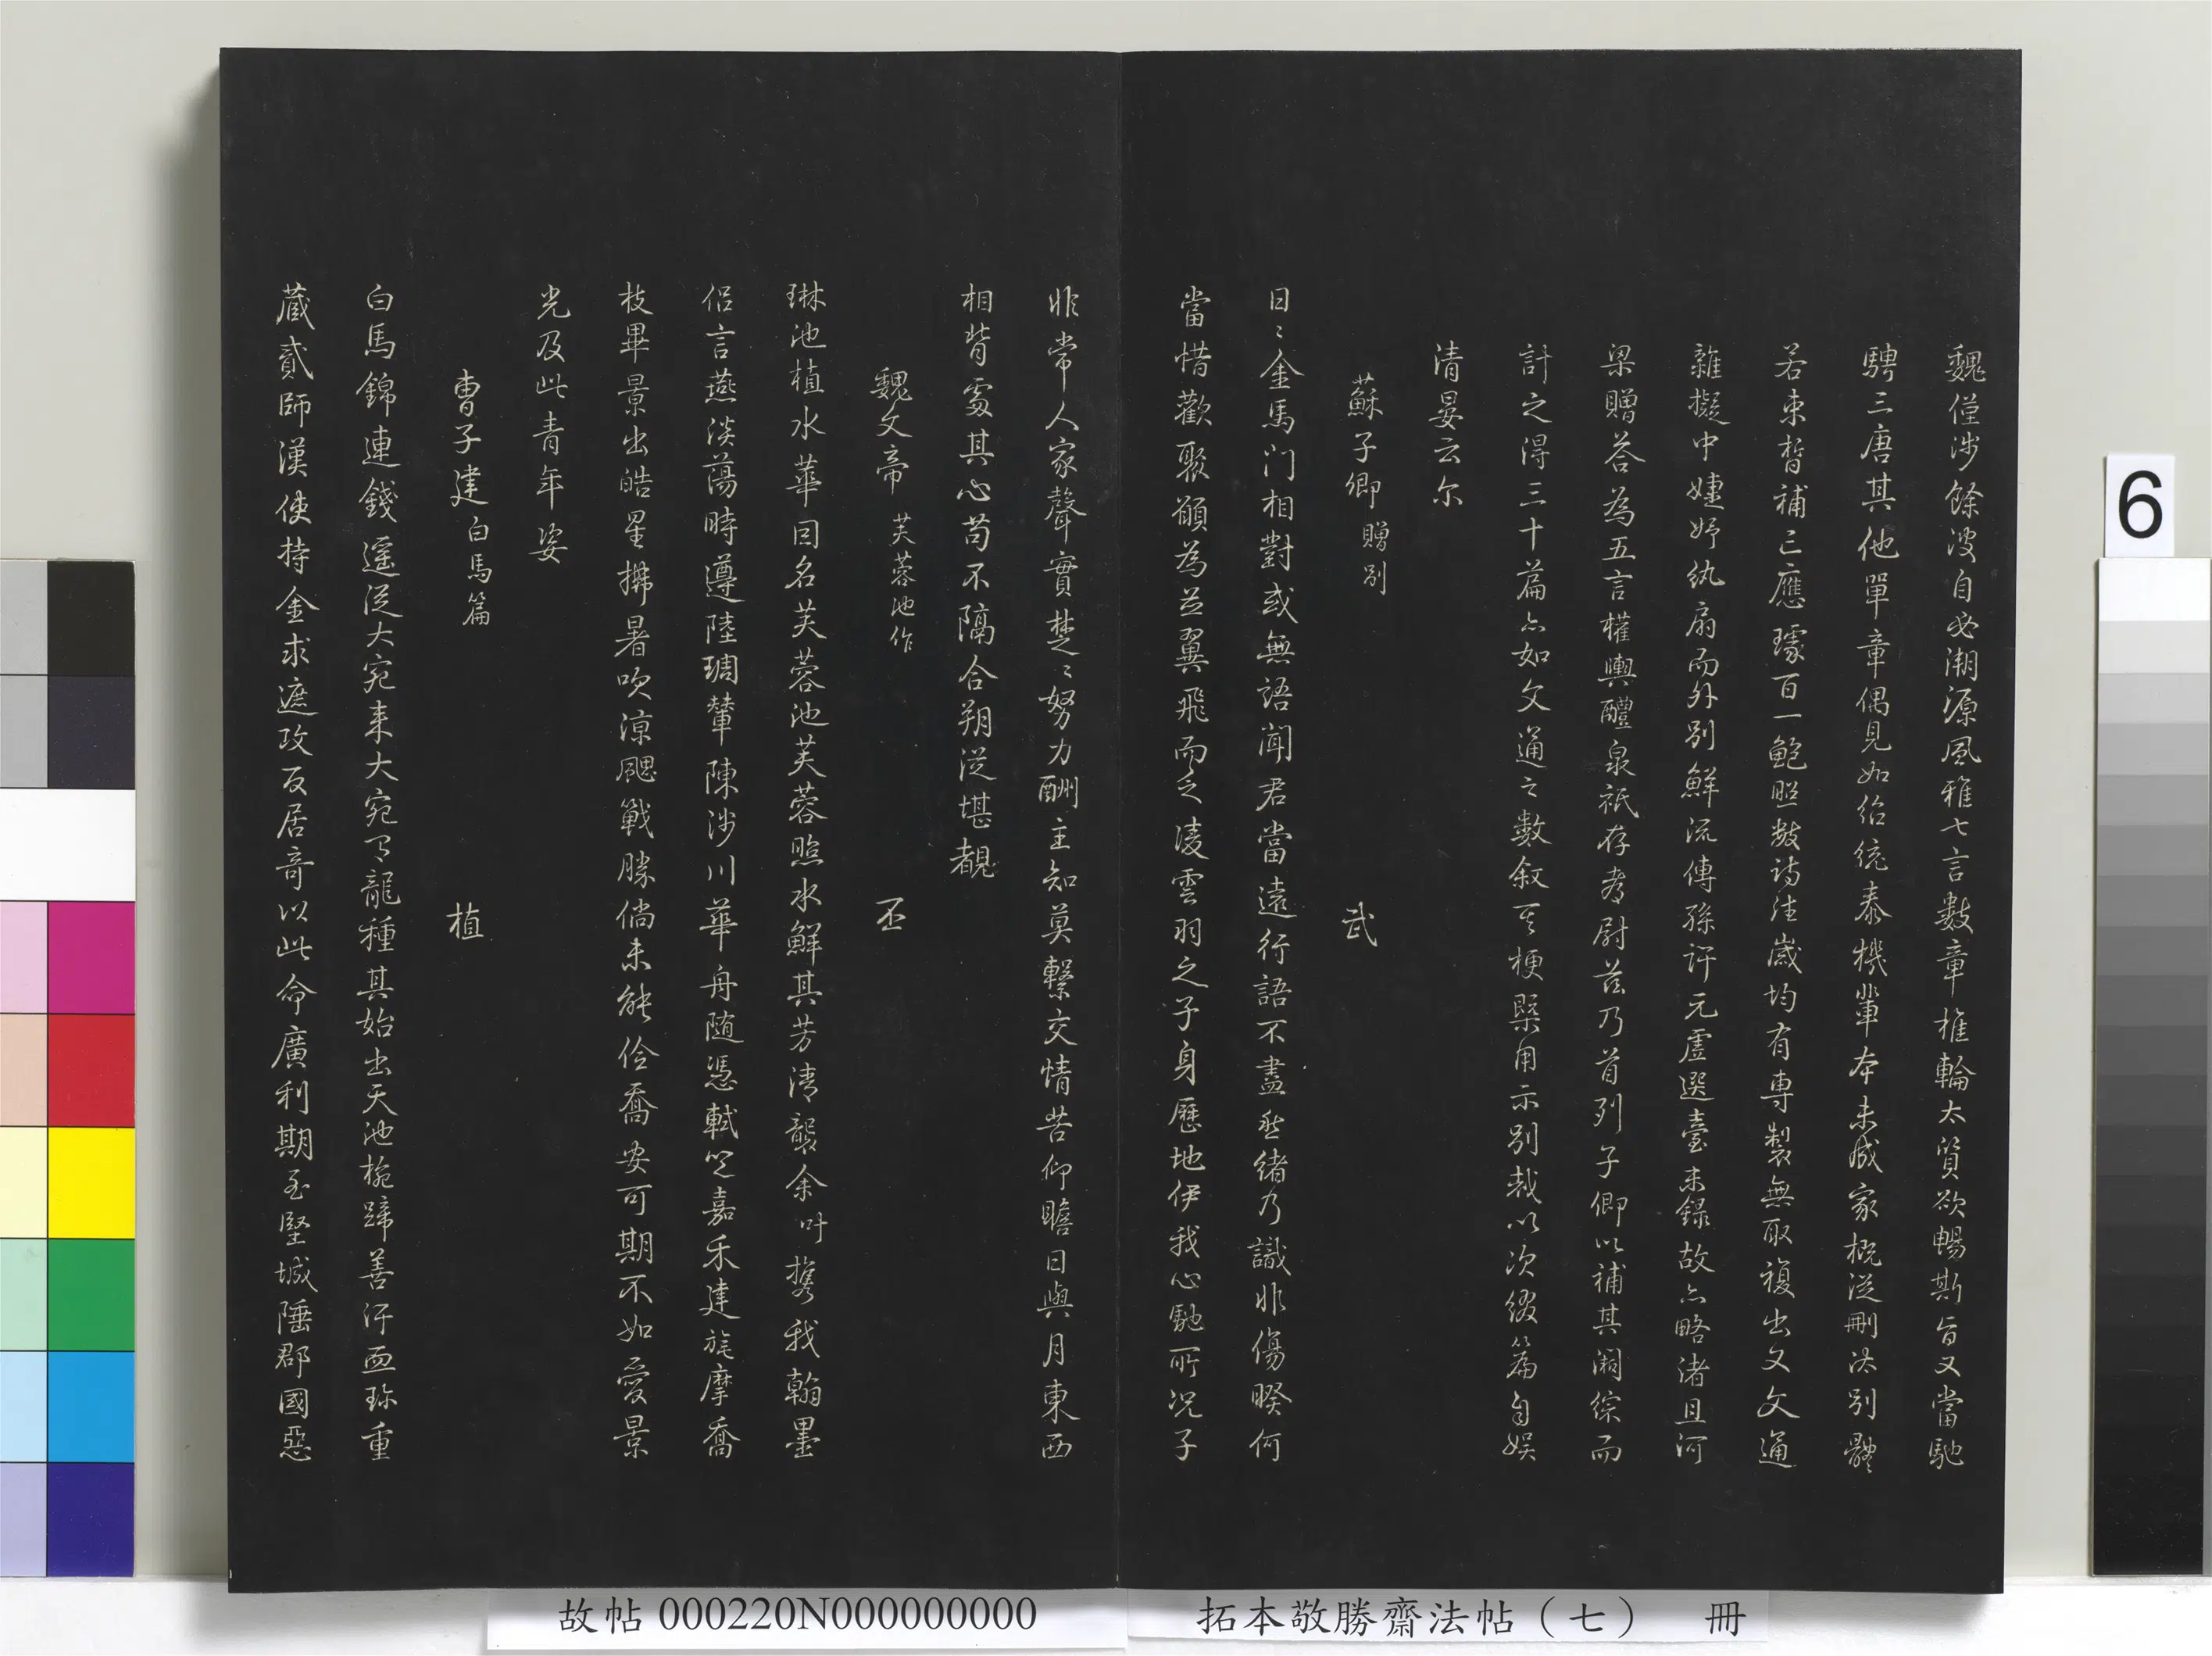 魏僅涉餘波自必溯源風雅七言數章椎輪太質欲暢斯旨又當馳
騁三唐其他單章偶見如紹統泰機輩本未成家概從刪汰別體
若束晳補亡應璩百一鮑照數詩法咸均有專製無取複出又文通
雜擬中婕妤紈扇而外別鮮流傳孫許元虛選臺未錄故亦略諸且河
梁贈答為五言權輿醴泉祇存考尉茲乃首列子卿以補其闕綜而
計之得三十篇亦如文通之數敘其梗槩用示別裁以次綴篇自娛
清晏云尔
蘇子卿 贈別 武
日〻金馬门相對或無語聞君當遠行語不盡愁緒乃識非傷暌何
當惜歡聚願為並翼飛而乏凌雲羽之子身歷地伊我心馳所況子
非常人家聲實楚〻努力酬主知莫繫交情苦仰瞻日與月東西
相背處其心苟不隔合朔從堪覩
魏文帝 芙蓉池作 丕
琳池植水華因名芙蓉池芙蓉照水鮮其芳清襲余吋攜我翰墨
侶言燕淡蕩時遵陸琱輦陳涉川華舟随憑軾覽嘉禾建旄摩喬
枝畢景出皓星拂暑吹涼颸戰勝倘未能伶喬安可期不如愛景
光及此青年姿
曹子建 白馬篇 植
白馬錦連錢遥從大宛来大宛有龍種其始出天池椀蹄善汗血珍重
蔵貳師漢使持金求遮攻反居奇以此命廣利期至堅城陲郡國惡
故帖 000220N000000000
拓本敬勝齋法帖（七） 冊
6